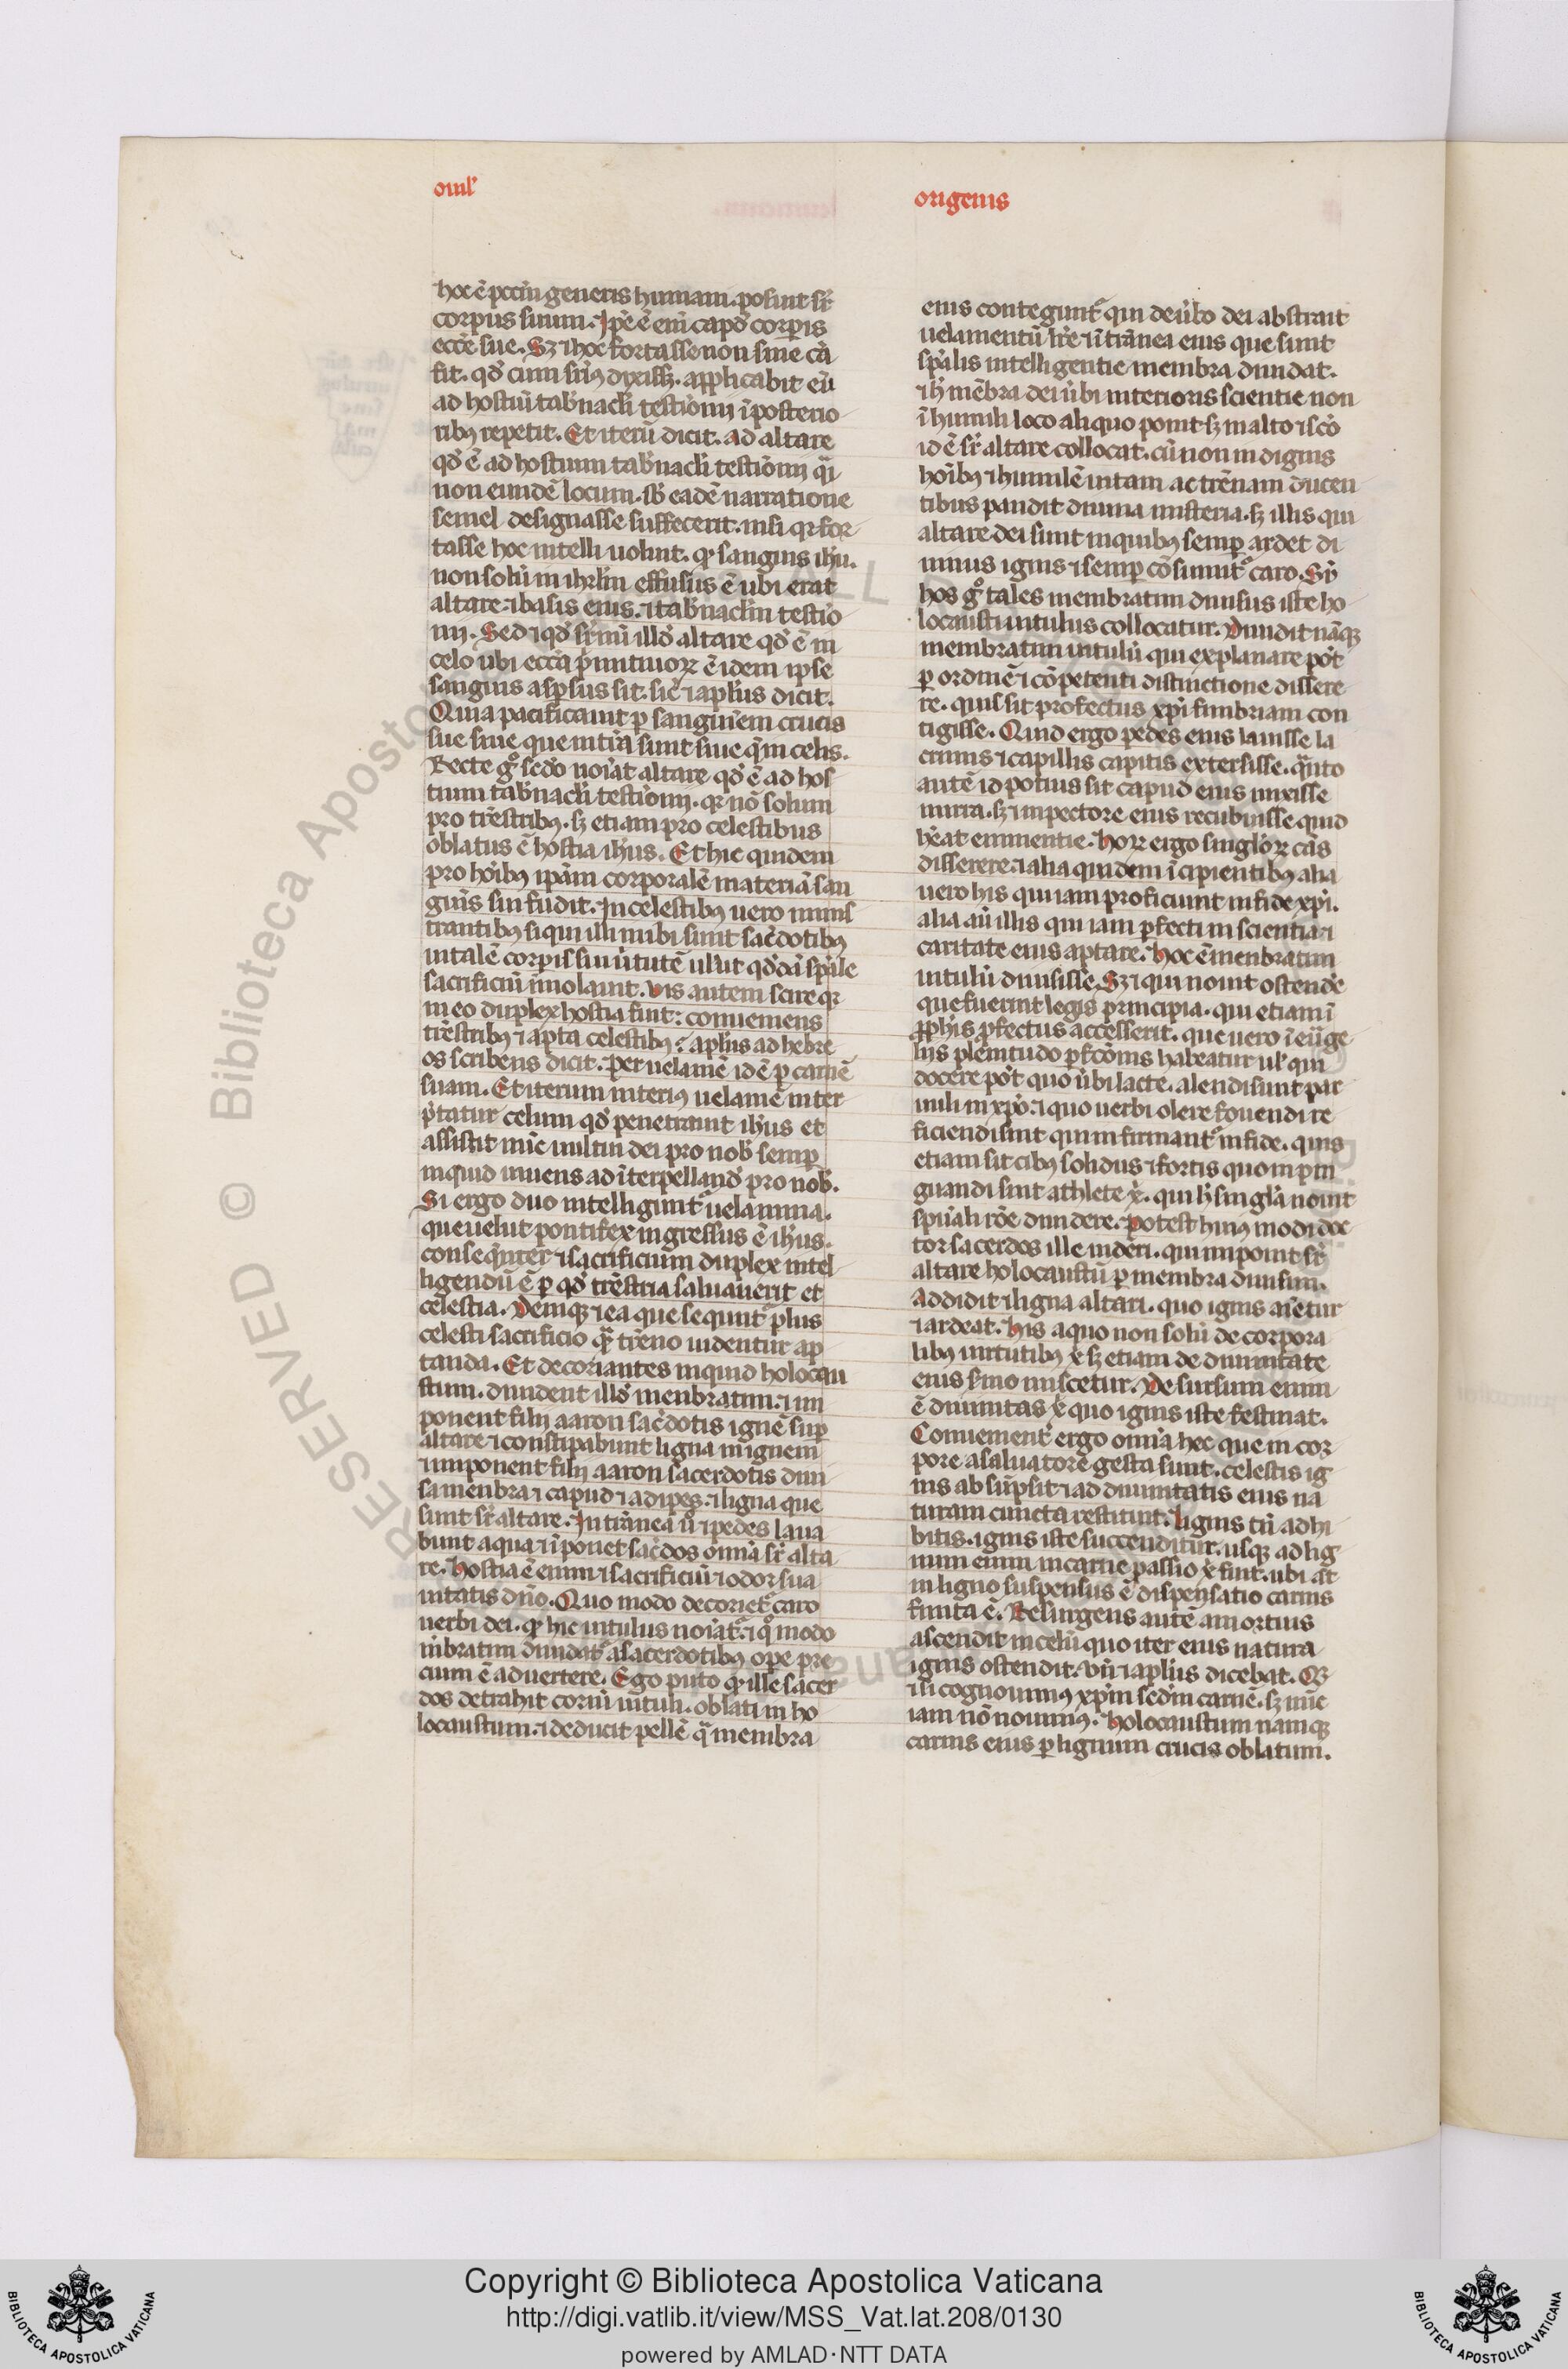 omƚ
origenis
hoc ē pccm̄ generis humani. posuit sr̄
corpus suum. Ip̄e ē eni̅ capd̓ corꝑis
ecc̄e sue. Sꝫ ⁊ hoc fortasse non sine cā
fit. qd̓ cum sr̄iꝰ dixissꝫ. applicabit eū
ad hostiū tab̓nacl̓i testionij ī posterio
ribꝰ repetit. Et iterū dicit. ad altare
qd̓ ē ad hostium tab̓nacl̓i testimonij q̄i
non eundē locum. sb̓ eadē narratione
semel designasse suffecerit. nisi qꝛ for
tasse hoc intelli uoluit. ꝙ sanguis ihu̅.
non solū in ihrlm̄ effusus ē ubi erat
altare. ⁊ basis eius. ⁊ tab̓naclm̄ testio
nij. Sed ⁊ qd̓ sr̄nū illd̓ altare qd̓ ē in
celo ubi ecc̄a p̓mitiuoꝝ ē idem ipse
sanguis asꝑsus sit. sic̄ ⁊ apl̓us dicit.
Quia pacificauit ꝑ sanguinem crucis
sue siue que in tr̄a sunt siue q̄ in celis.
Recte g̊ sed̓o noi̅at altare qd̓ ē ad hos
tium tab̓nacl̓i testionij. qꝛ nō solum
pro tr̄estribꝰ. sꝫ etiam pro celestibus
oblatus ē hostia ih̓us. Et hic quidem
pro ho̅ibꝰ ip̄am corporalē materiā san
guīs sui fudit. In celestibꝰ uero minis
trantibꝰ si qui illi inibi sunt sac̄dotibꝰ
uitalē corꝑis sui u̓tutē ul̓ut qd̓dā spi̅ale
sacrificiū īmolauit. Vis autem scire qꝛ
in eo duplex hostia fuit: conueniens
tr̄estribꝰ ⁊ apta celestibꝰ? apl̓us ad hebre
os scribens dicit. Per uelamē id ē ꝑ carnē
suam. Et iterum interiꝰ uelamē inter
p̓tatur celum qd̓ penetrauit ih̓us et
assistit nūc uultui dei pro nob̓ semꝑ
inquid uiuens ad īterpelland̓ pro nob̓.
Si ergo duo intelligunt᷑ uelamina.
que uelut pontifex ingressus ē ih̓us.
conseq̄nter ⁊ sacrificium duplex intel
ligendū ē ꝑ qd̓ tr̄estria saluauerit et
celestia. Deniqꝫ ⁊ ea que sequnt᷑ plus
celesti sacrificio q̄ tr̄eno uidentur ap
tanda. Et decoriantes inquid holocau
stum. diuident illd̓ menbratim. ⁊ im
ponent filij aaron sac̄dotis ignē suꝑ
altare ⁊ constipabunt ligna in ignem
⁊ imponent filij aaron sacerdotis diui
sa menbra ⁊ capud ⁊ adipes. ⁊ ligna que
sunt sr̄ altare. Intrānea u̓o ⁊ pedes laua
bunt aqua ⁊ īponet sac̄dos omīa sr̄ alta
re. Hostia ē enim ⁊ sacrificiū ⁊ odor sua
uitatis dn̄o. Quo modo decoriet᷑ caro
uerbi dei. ꝙ hic uitulus noi̅at᷑. ⁊ qͦ modo
mb̄ratim diuidat᷑ a sacerdotibꝰ ope pre
cium ē aduertere. Ego puto ꝙ ille sacer
dos detrahit coriū uituli. oblati in ho
locaustum. ⁊ deducit pellē q̄ membra
eius contegunt᷑ qui de u̓bo dei abstrait
uelamentū lr̄e ⁊ ītrānea eius que sunt
spi̅alis intelligentie membra diuidat.
⁊ h̓ mēbra dei u̓bi interioris scientie non
ī humili loco aliquo ponit sꝫ in alto ⁊ sc̄o
id ē sr̄ altare collocat. cū non indignis
ho̅ibꝰ ⁊ humilē uitam ac tr̄enam ducen
tibus pandit diuina misteria. sꝫ illis qui
altare dei sunt in quibꝰ semꝑ ardet di
uinus ignis ⁊ semꝑ cōsumit᷑ caro. Sr̄
hos g̊ tales membratim diuisus iste ho
locausti uitulus collocatur. Diuidit nāqꝫ
membratim uitulū qui explanare pōt
ꝑ ordinē ⁊ cōpetenti distinctione dissere
re. quis sit profectus xp̄i fimbriam con
tigisse. Quid ergo pedes eius lauisse la
crimis ⁊ capillis capitis extersisse. q̄nto
autē id potius sit capud eius unxisse
mirra. sꝫ ⁊ in pectore eius recubuisse quid
h̓eat eminentie. Hoꝝ ergo singl̓oꝝ cā̄s
disserere. ⁊ alia quidem īcipientibꝰ alia
uero his qui iam proficiunt in fide xp̄i.
alia aū illis qui iam ꝑfecti in scientia ⁊
caritate eius aptare. Hoc ē menbratim
uitulū diuisisse. Sꝫ ⁊ qui nouit ostend̓e
que fuerint legis principia. qui etiam ī
ꝓph̓is ꝓfectus accesserit. que uero ī eūge
lijs plēnitudo ꝑfc̄onis habeatur ul̓ qui
docere pōt quo u̓bi lacte. alendi sunt par
uuli in xp̄o. ⁊ quo uerbi olere fouendi re
ficiendi sint qui infirmant᷑ in fide. quis
etiam sit cibꝰ solidus ⁊ fortis quo inpin
guandi sint athlete x̄. qui h̓ singl̓a nouit
spi̅uali rōe diuidere. Potest huiꝰ modi doc
tor sacerdos ille uideri. qui inponit sr̄
altare holocaustū ꝑ membra diuisum.
Addidit ⁊ ligna altari. quo ignis aīetur
⁊ ardeat. His a quo non solū de corpora
libꝰ uirtutibꝰ x̄ sꝫ etiam de diuinitate
eius s̓mo miscetur. De sursum enim
ē diuinitas x̄ quo ignis iste festinat.
Conuenient̓ ergo omīa hec que in cor
pore a saluatore gesta sunt. celestis ig
nis absūpsit ⁊ ad diuinitatis eius na
turam cuncta restituit. Lignis tn̄ adhi
bitis. ignis iste succenditur. usqꝫ ad lig
num enim in carne passio x̄ fuit. ubi aūt
in ligno suspensus ē dispensatio carnis
finita ē. Resurgens autē a mortuis
ascendit in celū quo iter eius natura
ignis ostendit. vn̄ ⁊ apl̓us dicebat. Qꝫ
⁊ si cognouimꝰ xp̄m sed̓m carnē. sꝫ nūc
iam nō nouimꝰ. Holocaustum namqꝫ
carnis eius ꝑ lignum crucis oblatum.
Copyright © Biblioteca Apostolica Vaticana
http://digi.vatlib.it/view/MSS_Vat.lat.208/0130
powered by AMLAD·NTT DATA